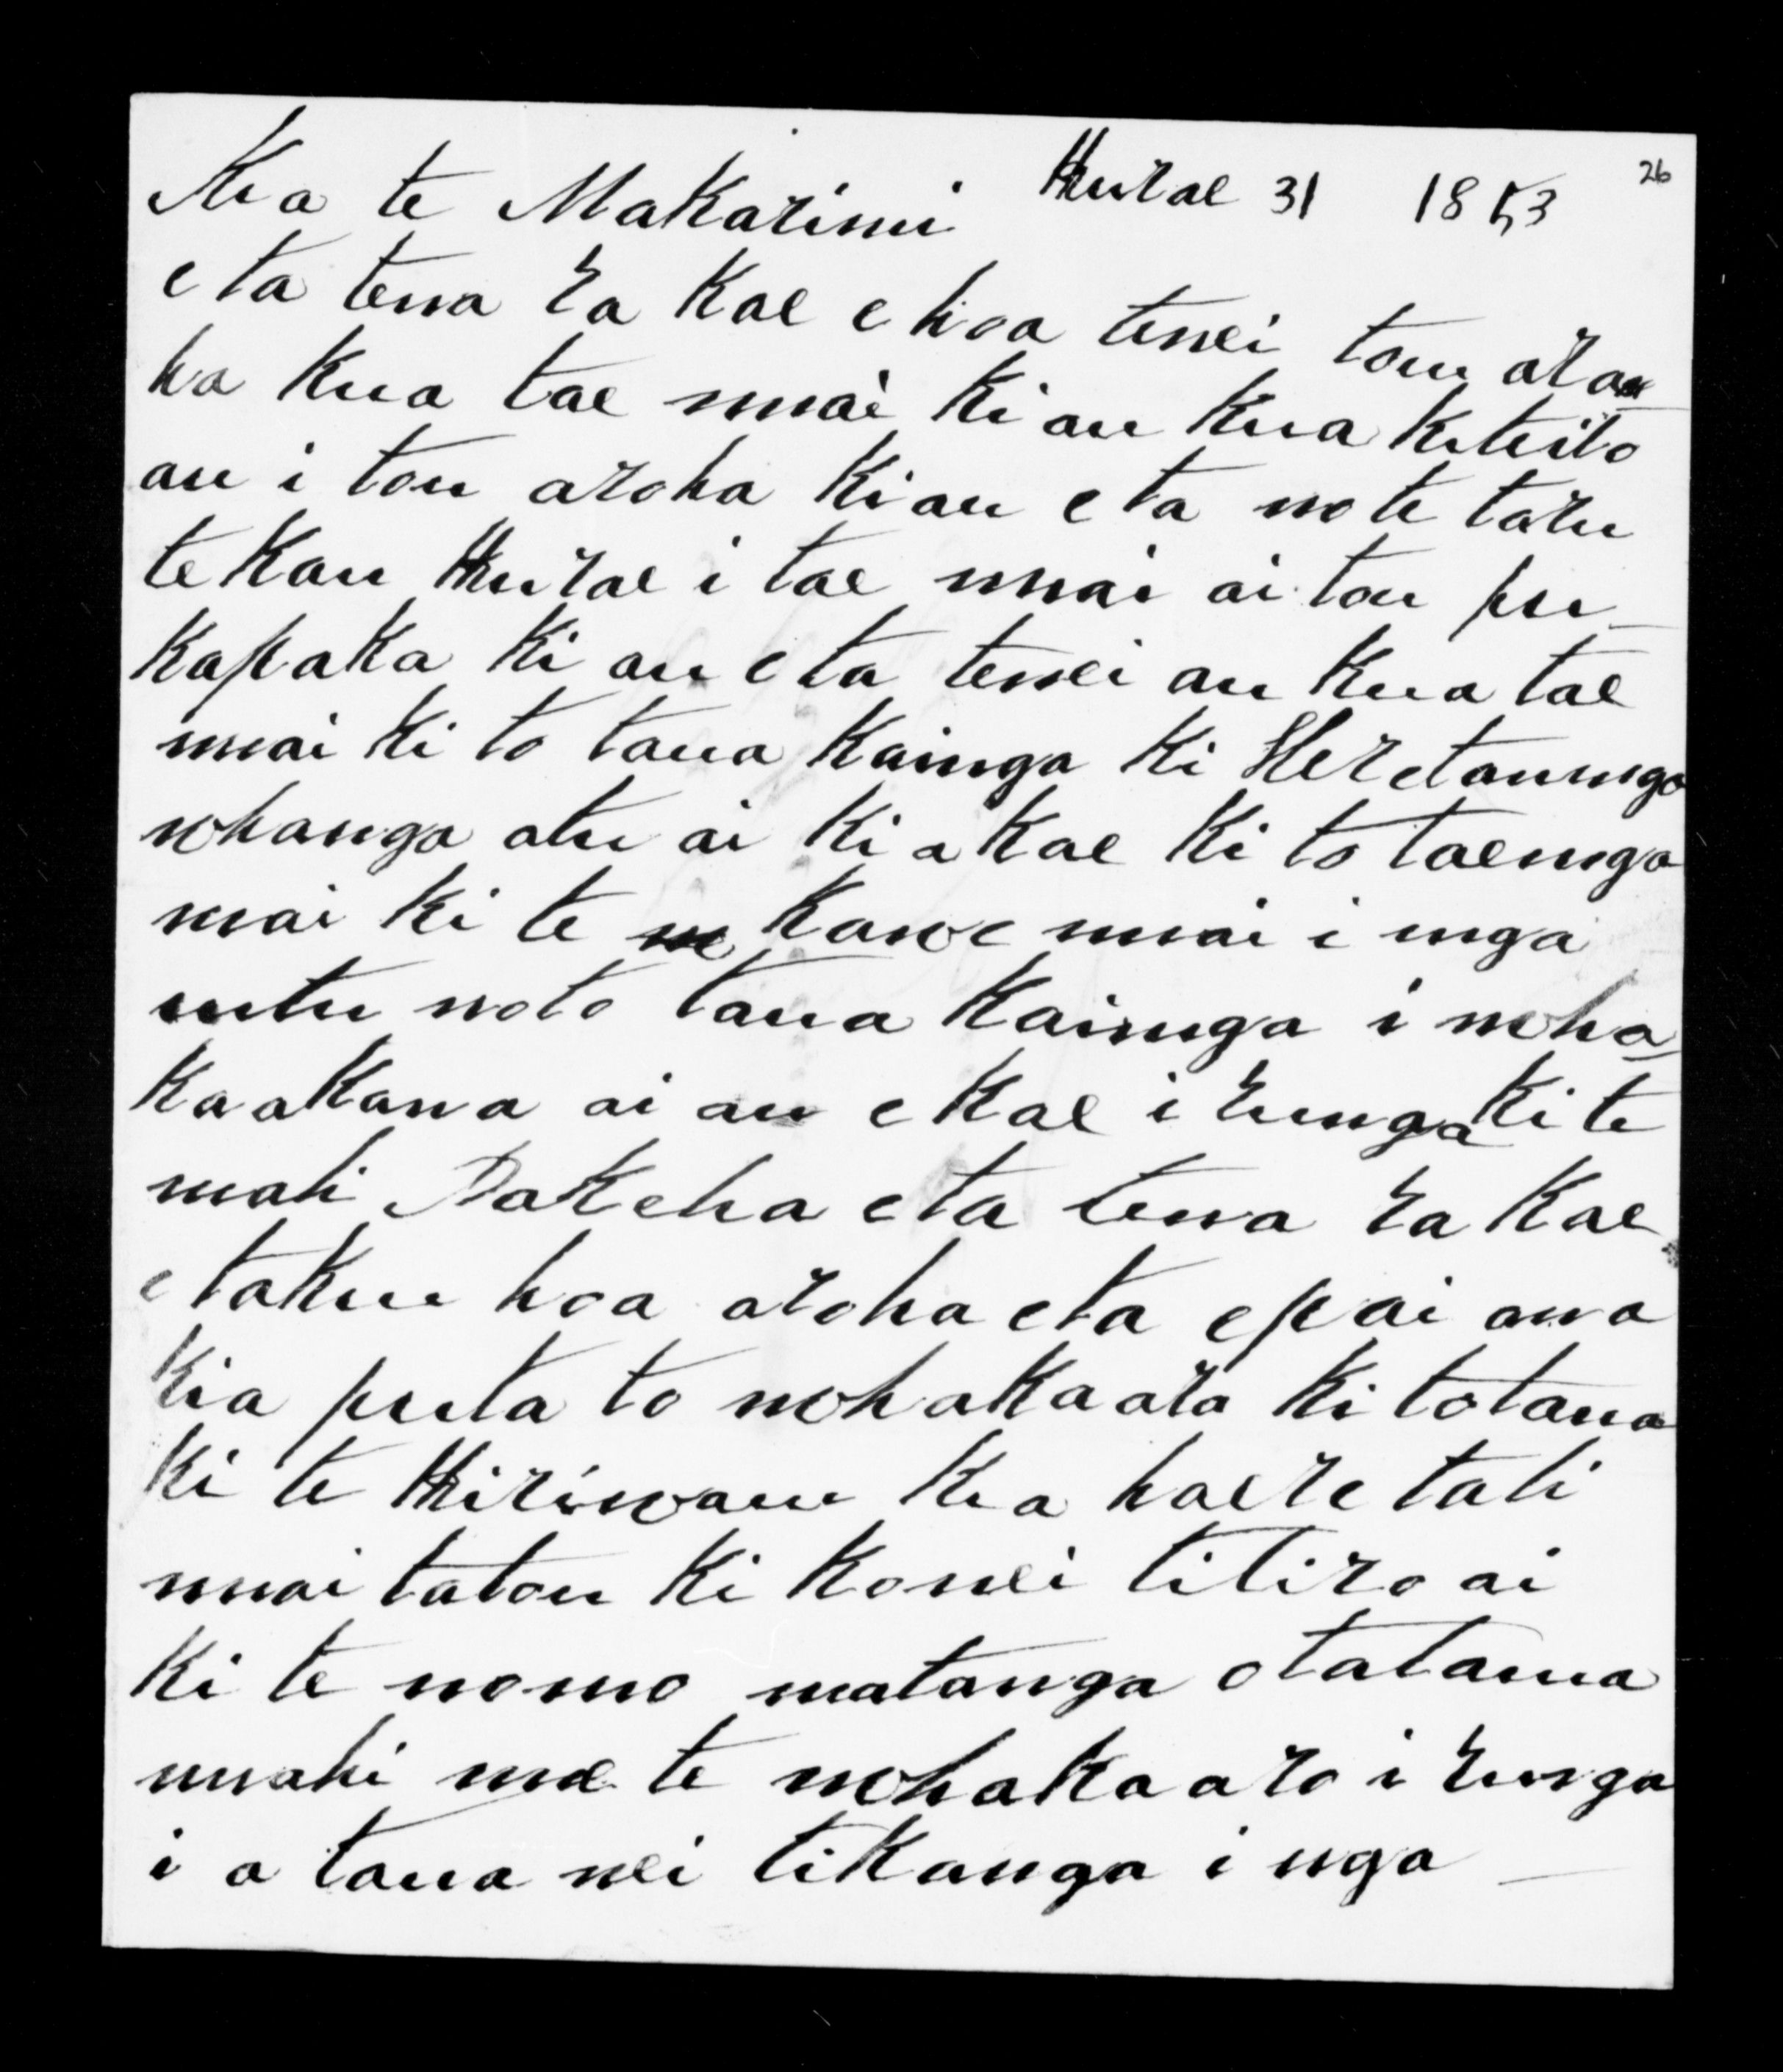 26
Kia te Makarini Hurae 31 1853
e ta tena ra Koe e hoa tenei tou aro
ha Kua tae mai Ki au Kua Kiteito
au i tou aroha Ki au e ta no te toru
te Kau Hurae i tae mai ai tou pu_
Kapaka Ki au e ta tenei au Kua tae
mai Ki to taua Kainga Ki Heretaunga
whanga atu ai Ki a Koe Ki to taenga
mai Ki te Kawe mai i nga
utu no to taua Kainga i wha_
Kaakona ai au e Koe i runga Ki te
mahi Pakeha e ta tena ra Koe
e taku hoa aroha e ta e pai ana
Kia puta to whakaaro Ki to taua
Ki te Hiriwau Kia haere tahi
mai tatou Ki Konei titiro ai
Ki te nomo matanga o ta taua
mahi me te whakaaro i runga
i a taua nei tikanga i nga _